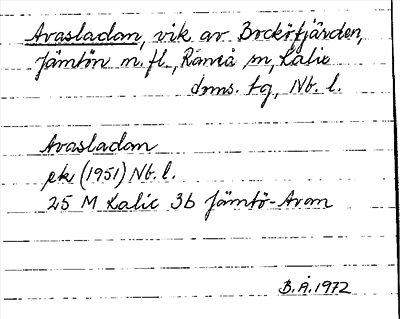 Avasladan, vik av Bocköfjärden,
Jämtön m. fl., Råneå sn, Kalix
doms. tg, Nb. l.
Avasladan
ek (1951) Nb. l.
25 M Kalix 3b Jämtö-Avan
B.Å. 1972